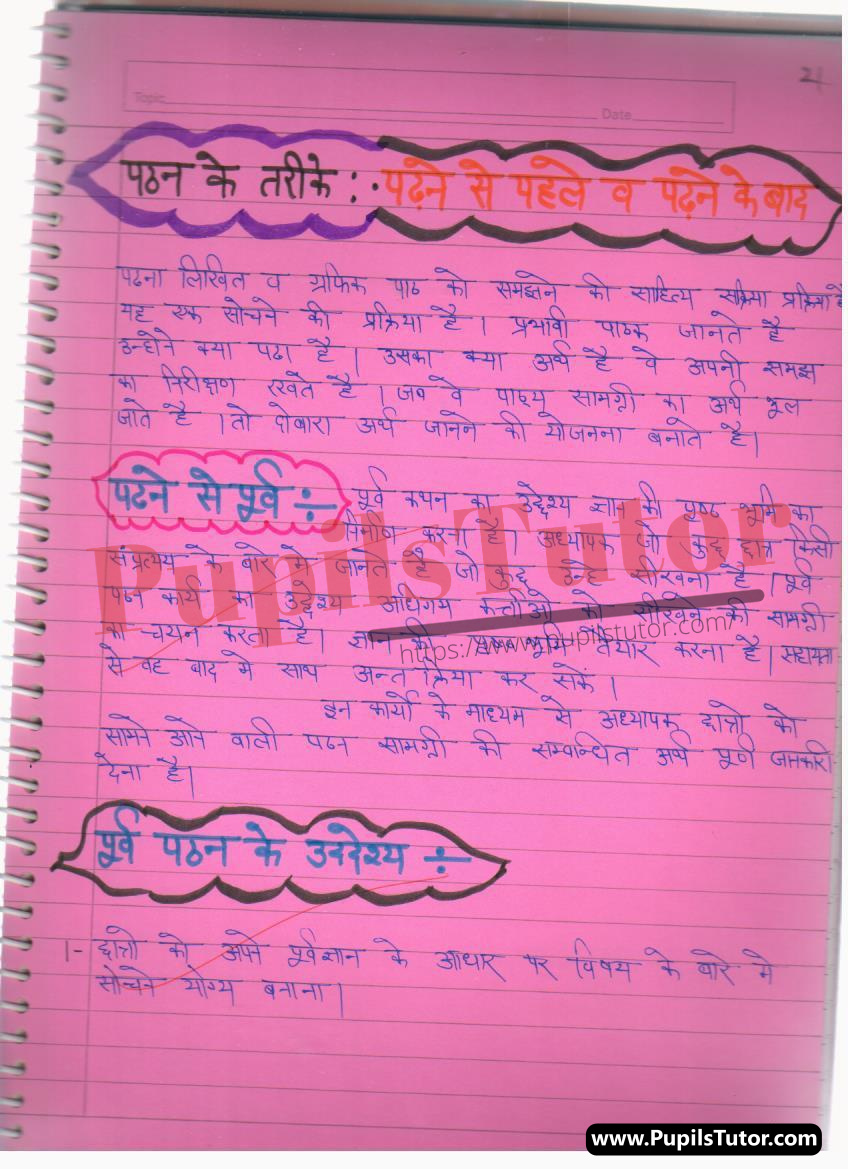 21
Topic
Date
पठन के तरीके :· पढ़ने से पहले व पढ़ने के बाद
पढना लिखित व ग्रफिक पाठ को समझने की साहित्य सक्रिया प्रक्रिया है
यह एक सोचने की प्रक्रिया है। प्रभावी पाठक जानते है
उन्होने क्या पढा है। उसका क्या अर्थ है वे अपनी समझ
का निरीक्षण रखते है। जब वे पाठ्य सामग्री का अर्थ भूल
जाते है। तो दोबारा अर्थ जानने की योजनना बनाते है।
पढने से पूर्व ÷ पूर्व कथन का उद्देश्य ज्ञान की पृष्ठ भूमि का
निर्माण करना है। अध्यापक जो कुछ छात्र किसी
संप्रत्यय के बारे मे जानते है जो कुछ उन्हे सीखना है। पूर्व
पठन कार्य का उद्देश्य अधिगम कर्त्ताओ को सीखने की सामग्री
का चयन करता है। ज्ञान की पृष्ठ भूमि तैयार करना है। सहायता
से वह बाद मे साथ अन्त क्रिया कर सकें।
इन कार्यो के माध्यम से अध्यापक छात्रो को
सामने आने वाली पठन सामग्री की सम्बन्धित अर्थ पूर्ण जानकारी
देना है।
पूर्व पठन के उददेश्य ÷
1- छात्रो को अपने पूर्वज्ञान के आधार पर विषय के बारे मे
सोचने योग्य बनाना।
PupilsTutor
https://www.pupilstutor.com/
www.PupilsTutor.com